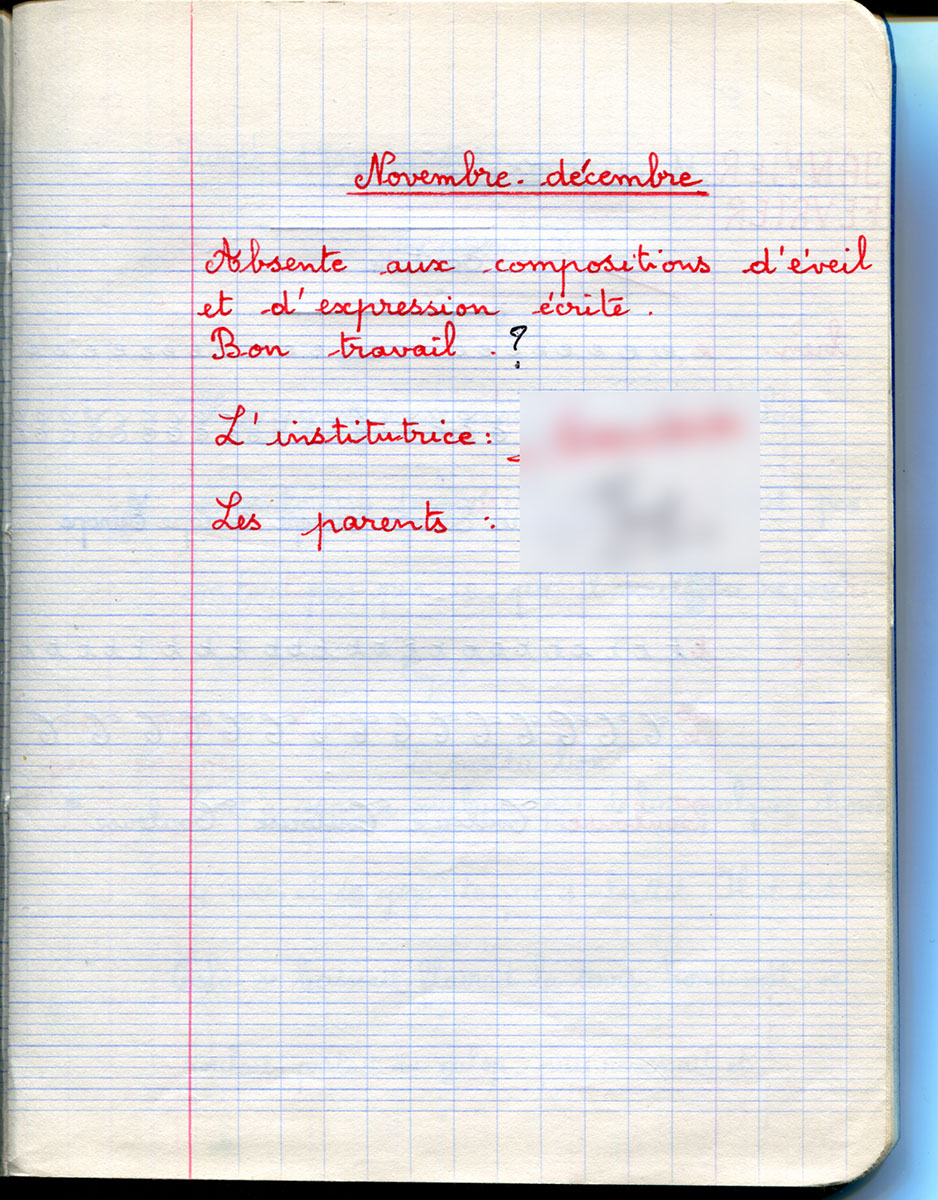 Novembre. décembre
Absente aux compositions d'éveil
et d'expression écrite.
Bon travail. ?
L'institutrice:
Les parents :